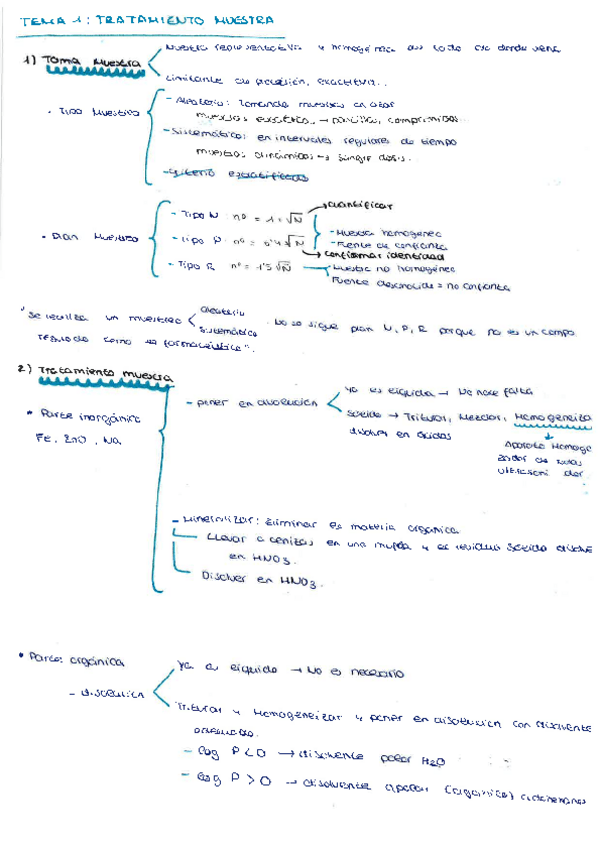 TEMA 1: TRATAMIENTO MUESTRA
1) Toma Muestra
Muestra representativa y homogénea del todo de donde viene
Limitante de precisión, exactitud...
· Tipo Muestreo
- Aleatorio: Tomando muestras al azar
muestras estáticas → pastillas, comprimidos...
- Sistemático: en intervalos regulares de tiempo
muestras dinámicas →
- Criterio estratificado
· Plan Muestreo
- Tipo N nº = 1 + √N
→ Cuantificar
- Tipo P nº = 0'4 √N
- Muestra homogenea
- Fuente de confianza
→ Confirmar identidad
- Tipo R nº = 1'5 √N
Muestra no homogénea
Fuente desconocida = no confianza
"Se realiza un muestreo
aleatorio
sistemático
. No se sigue plan N, P, R porque no es un campo
regulado como el farmacéutico".
2) Tratamiento muestra
• Parte inorgánica
Fe, ZnO, Na
- poner en disolución
Ya es líquida → No hace falta
Sólido → Triturar, Mezclar, Homogeneiza
disolver en ácidos
Aparato Homoge
- Mineralizar: Eliminar la materia organica
Llevar a cenizas en una mufla y el residuo sólido disolve
en HNO3.
Disolver en HNO3.
• Parte orgánica
Ya es líquido → No es necesario
- disolución
Triturar y Homogeneizar y poner en disolución con disolvente
adecuado.
- log P < 0 → disolvente polar H2O
- log P > 0 → disolvente apolar (orgánico)